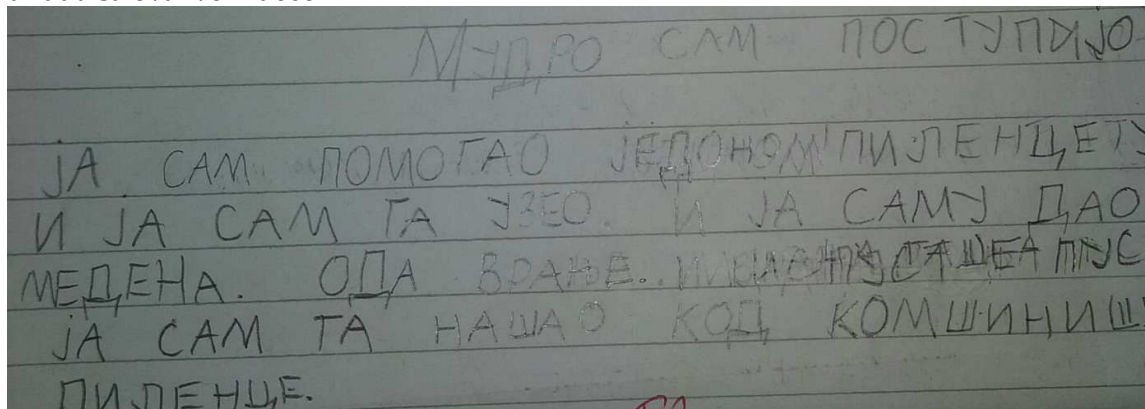 МУДРО САМ ПОСТУПИЈО
ЈА САМ ПОМОГАО ЈЕДОНОМ ПИЛЕНЦЕТУ
И ЈА САМ ГА УЗЕО. И ЈА САМУ ДАО
МЕДЕНА. ОДА ВРАЊЕ..
ЈА САМ ГА НАШАО КОД КОМШИНИШ
ПИЛЕНЦЕ.